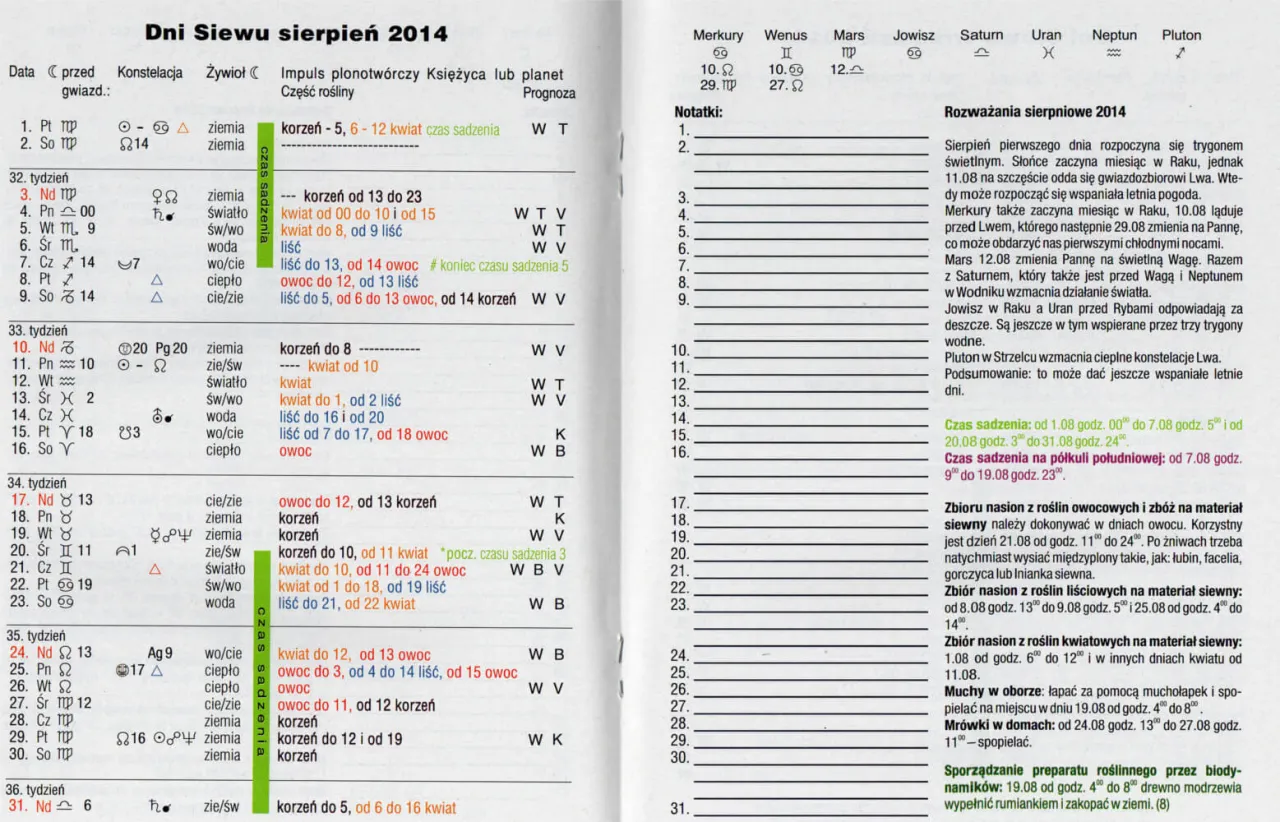 Dni Siewu sierpień 2014
Data ☾ przed gwiazd.: Konstelacja Żywioł ☾ Impuls plonotwórczy Księżyca lub planet
Część rośliny Prognoza
1. Pt ♍ ☉ - ♋ △ ziemia korzeń - 5, 6 - 12 kwiat czas sadzenia W T
2. So ♍ ☊14 ziemia ----------------------------
czas sadzenia
32. tydzień
3. Nd ♍ ♀♌ ziemia --- korzeń od 13 do 23
4. Pn ♎ 00 ♄ światło kwiat od 00 do 10 i od 15 W T V
5. Wt ♏ 9 św/wo kwiat do 8, od 9 liść W T
6. Śr ♏ woda liść W V
7. Cz ♐ 14 7 wo/cie liść do 13, od 14 owoc # koniec czasu sadzenia 5
8. Pt ♐ △ ciepło owoc do 12, od 13 liść
9. So ♑ 14 △ cie/zie liść do 5, od 6 do 13 owoc, od 14 korzeń W V
33. tydzień
10. Nd ♑ 20 Pg20 ziemia korzeń do 8 ------------
W V
11. Pn ♒ 10 ☉ - ♌ zie/św ---- kwiat od 10
12. Wt ♒ światło kwiat W T
13. Śr ♓ 2 św/wo kwiat do 1, od 2 liść W V
14. Cz ♓ woda liść do 16 i od 20
15. Pt ♈ 18 ☋3 wo/cie liść od 7 do 17, od 18 owoc K
16. So ♈ ciepło owoc W B
34. tydzień
17. Nd ♉ 13 cie/zie owoc do 12, od 13 korzeń W T
18. Pn ♉ ziemia korzeń K
19. Wt ♉ ☿☍♆ ziemia korzeń W V
20. Śr ♊ 11 1 zie/św korzeń do 10, od 11 kwiat *pocz. czasu sadzenia 3
21. Cz ♊ △ światło kwiat do 10, od 11 do 24 owoc W B V
22. Pt ♋ 19 św/wo kwiat od 1 do 18, od 19 liść
23. So ♋ woda liść do 21, od 22 kwiat W B
czas sadzenia
35. tydzień
24. Nd ♌ 13 Ag9 wo/cie kwiat do 12, od 13 owoc W B
25. Pn ♌ 17 △ ciepło owoc do 3, od 4 do 14 liść, od 15 owoc
26. Wt ♌ ciepło owoc W V
27. Śr ♍ 12 cie/zie owoc do 11, od 12 korzeń
28. Cz ♍ ziemia korzeń
29. Pt ♍ ☊16 ☉☍♆ ziemia korzeń do 12 i od 19 W K
30. So ♍ ziemia korzeń
36. tydzień
31. Nd ♎ 6 ♄ zie/św korzeń do 5, od 6 do 16 kwiat
Merkury Wenus Mars Jowisz Saturn Uran Neptun Pluton
♋ ♊ ♍ ♋ ♎ ♓ ♒ ♐
10.♌ 10.♋ 12.♎
29.♍ 27.♌
Notatki:
1.
2.
3.
4.
5.
6.
7.
8.
9.
10.
11.
12.
13.
14.
15.
16.
17.
18.
19.
20.
21.
22.
23.
24.
25.
26.
27.
28.
29.
30.
31.
Rozważania sierpniowe 2014
Sierpień pierwszego dnia rozpoczyna się trygonem
świetlnym. Słońce zaczyna miesiąc w Raku, jednak
11.08 na szczęście odda się gwiazdozbiorowi Lwa. Wte-
dy może rozpocząć się wspaniała letnia pogoda.
Merkury także zaczyna miesiąc w Raku, 10.08 ląduje
przed Lwem, którego następnie 29.08 zmienia na Pannę,
co może obdarzyć nas pierwszymi chłodnymi nocami.
Mars 12.08 zmienia Pannę na świetlną Wagę. Razem
z Saturnem, który także jest przed Wagą i Neptunem
w Wodniku wzmacnia działanie światła.
Jowisz w Raku a Uran przed Rybami odpowiadają za
deszcze. Są jeszcze w tym wspierane przez trzy trygony
wodne.
Pluton w Strzelcu wzmacnia cieplne konstelacje Lwa.
Podsumowanie: to może dać jeszcze wspaniałe letnie
dni.
Czas sadzenia: od 1.08 godz. 00⁰⁰ do 7.08 godz. 5⁰⁰ i od
20.08 godz. 3⁰⁰ do 31.08 godz. 24⁰⁰.
Czas sadzenia na półkuli południowej: od 7.08 godz.
9⁰⁰ do 19.08 godz. 23⁰⁰.
Zbioru nasion z roślin owocowych i zbóż na materiał
siewny należy dokonywać w dniach owocu. Korzystny
jest dzień 21.08 od godz. 11⁰⁰ do 24⁰⁰. Po żniwach trzeba
natychmiast wysiać międzyplony takie, jak: łubin, facelia,
gorczyca lub lnianka siewna.
Zbiór nasion z roślin liściowych na materiał siewny:
od 8.08 godz. 13⁰⁰ do 9.08 godz. 5⁰⁰ i 25.08 od godz. 4⁰⁰ do
14⁰⁰.
Zbiór nasion z roślin kwiatowych na materiał siewny:
1.08 od godz. 6⁰⁰ do 12⁰⁰ i w innych dniach kwiatu od
11.08.
Muchy w oborze: łapać za pomocą muchołapek i spo-
pielać na miejscu w dniu 19.08 od godz. 4⁰⁰ do 8⁰⁰.
Mrówki w domach: od 24.08 godz. 13⁰⁰ do 27.08 godz.
11⁰⁰ – spopielać.
Sporządzanie preparatu roślinnego przez biody-
namików: 19.08 od godz. 4⁰⁰ do 8⁰⁰ drewno modrzewia
wypełnić rumiankiem i zakopać w ziemi. (8)